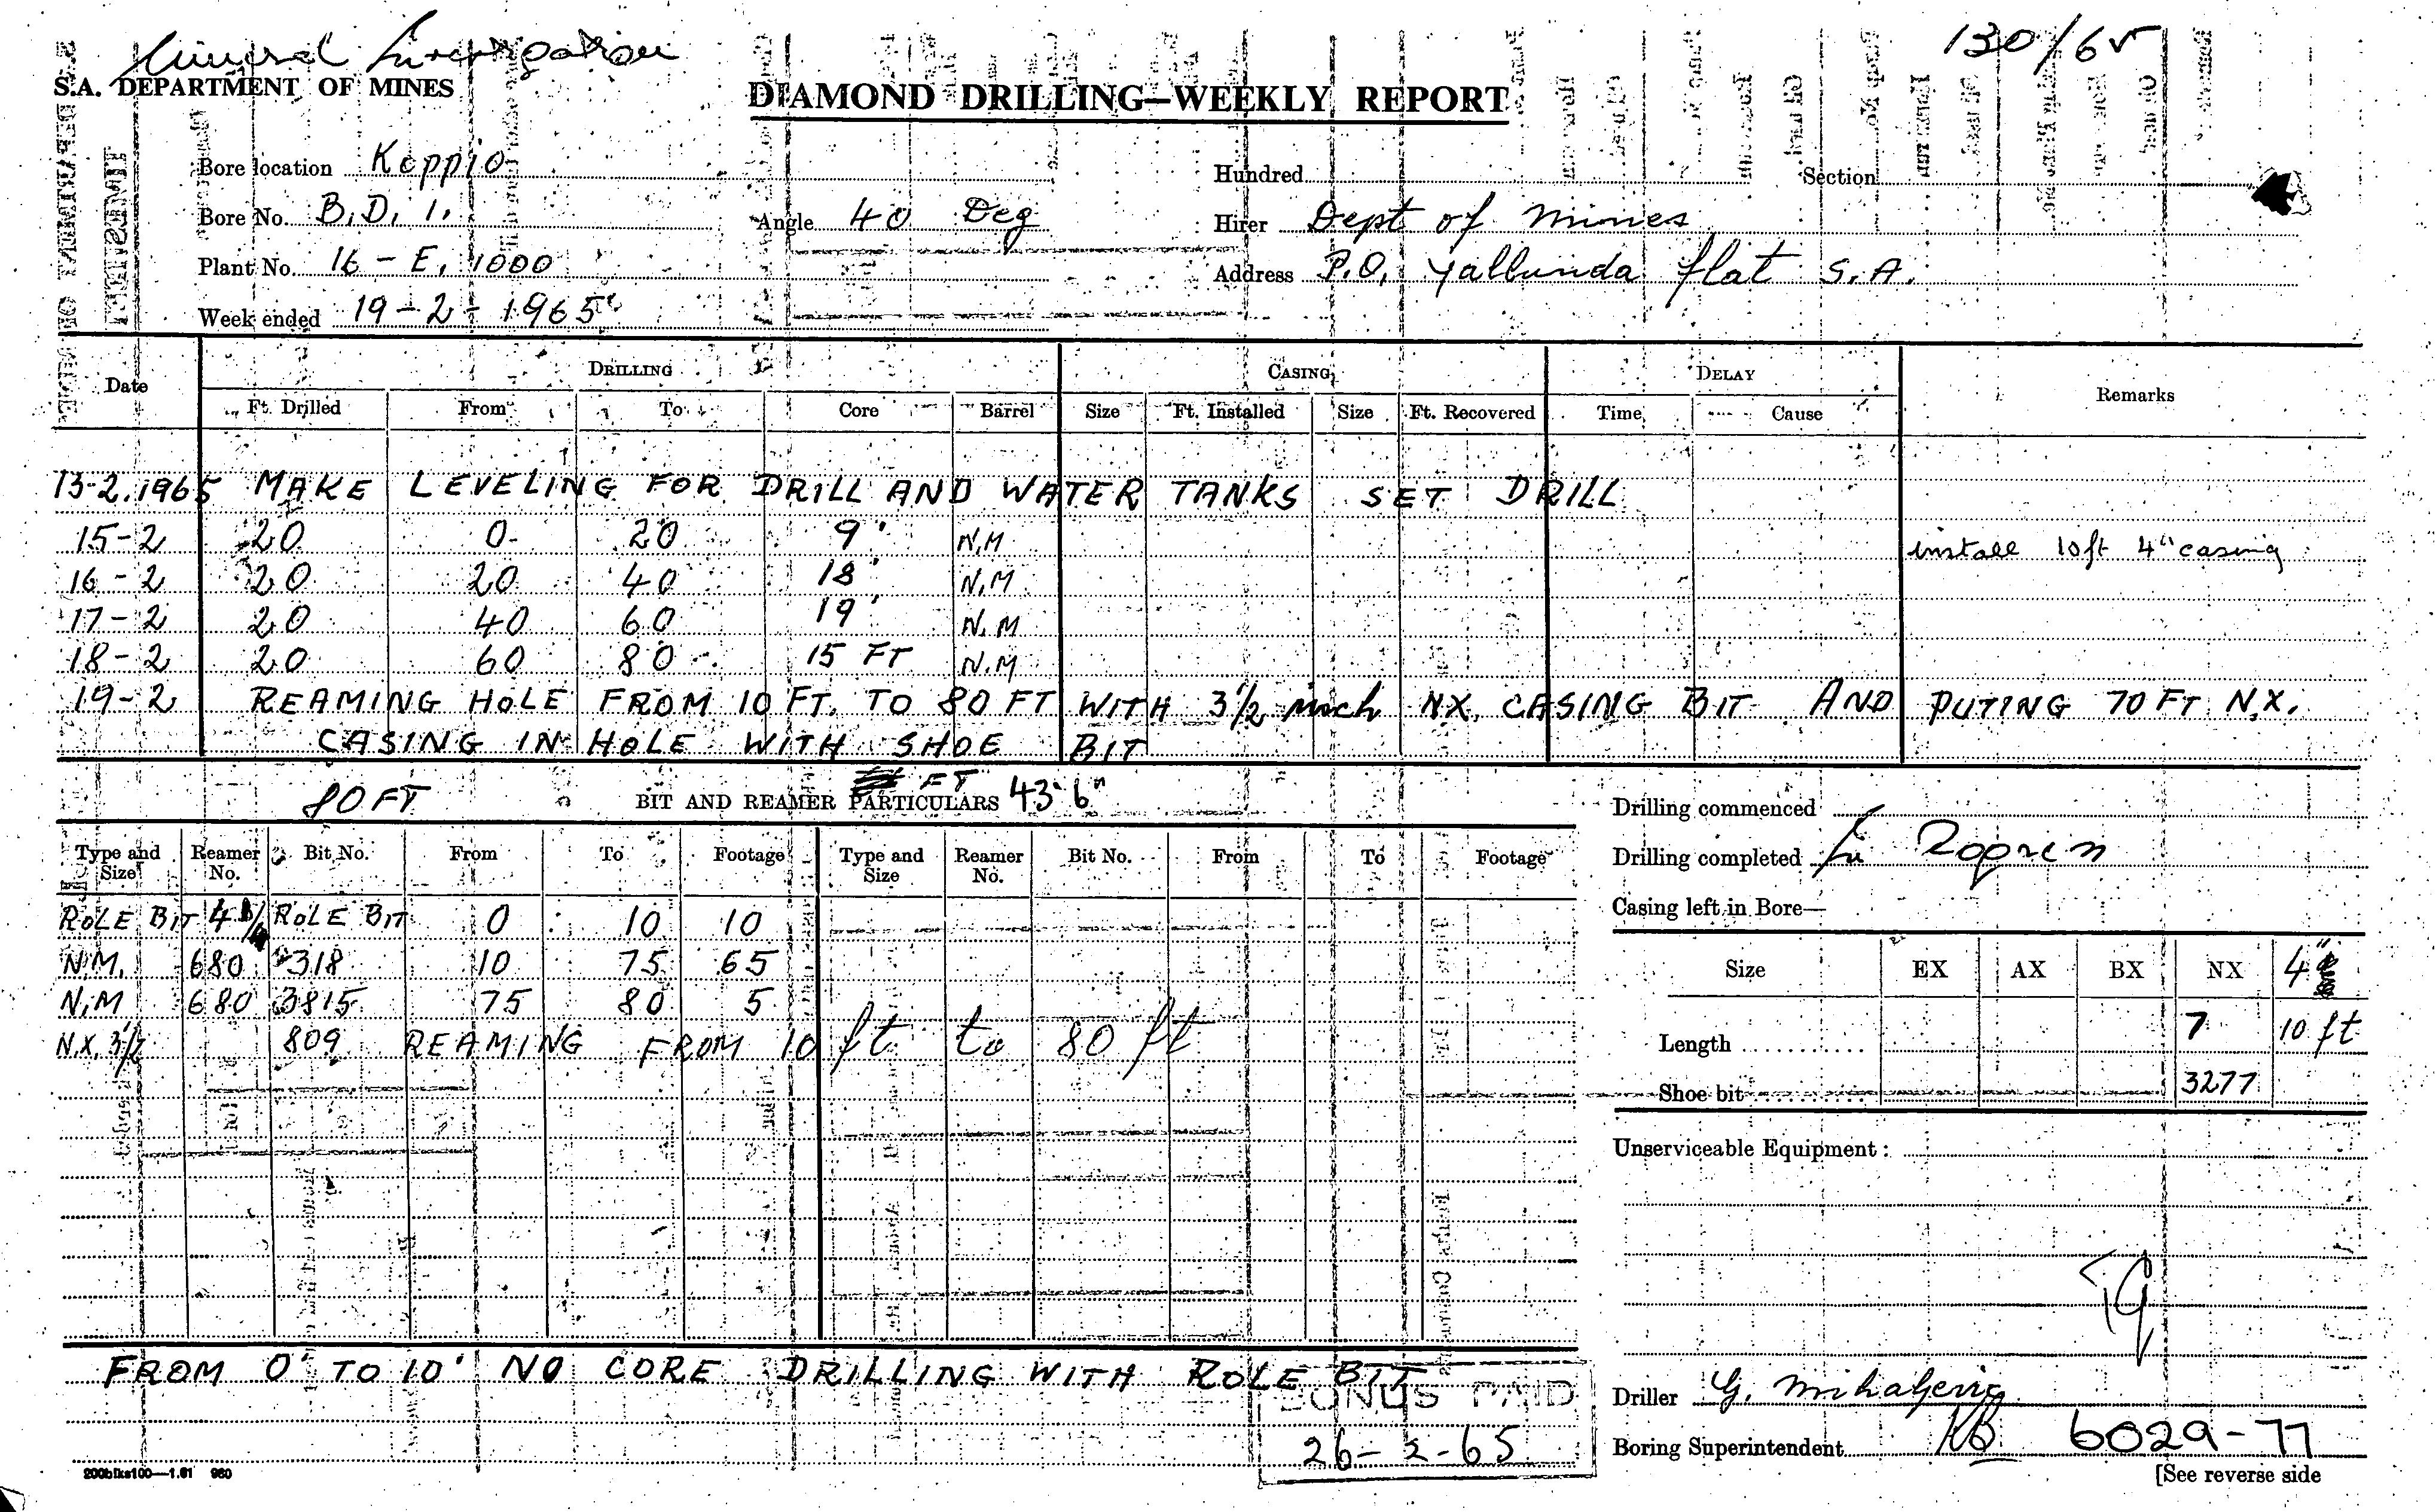 Mineral Investigation
130/65
S.A. DEPARTMENT OF MINES
DIAMOND DRILLING—WEEKLY REPORT
Bore location Koppio
Hundred
Section
Bore No. B.D. 1.
Angle 40 Deg
Hirer Dept of Mines
Plant No. 16 - E, 1000
Address P.O. Yallunda Flat S.A.
Week ended 19-2-1965
Date
DRILLING
CASING
DELAY
Remarks
Ft. Drilled From To Core Barrel Size Ft. Installed Size Ft. Recovered Time Cause
13-2.1965 MAKE LEVELING FOR DRILL AND WATER TANKS SET DRILL
15-2 20 0 20 9' N.M install 10ft 4" casing
16-2 20 20 40 18' N.M.
17-2 20 40 60 19' N.M
18-2 20 60 80 15 FT N.M
19-2 REAMING HOLE FROM 10 FT. TO 80 FT WITH 3 1/2 inch N.X. CASING BIT AND PUTING 70 FT N.X.
CASING IN HOLE WITH SHOE BIT
80 FT
BIT AND REAMER PARTICULARS
FT 43' 6"
Drilling commenced
Drilling completed
Casing left in Bore—
Type and Size Reamer No. Bit No. From To Footage Type and Size Reamer No. Bit No. From To Footage
ROLE BIT ROLE BIT 0 10 10
N.M. 680 318 10 75 65
N.M 680 3815 75 80 5
N.X. 3 1/2 809 REAMING FROM 10 ft to 80 ft
Size EX AX BX NX 4"
Length 7 10 ft
Shoe bit 3277
Unserviceable Equipment :
FROM 0' TO 10' NO CORE DRILLING WITH ROLE BIT
BONUS PAID
26-2-65
Driller
Boring Superintendent KB 6029-77
200blks100—1.61 960
[See reverse side